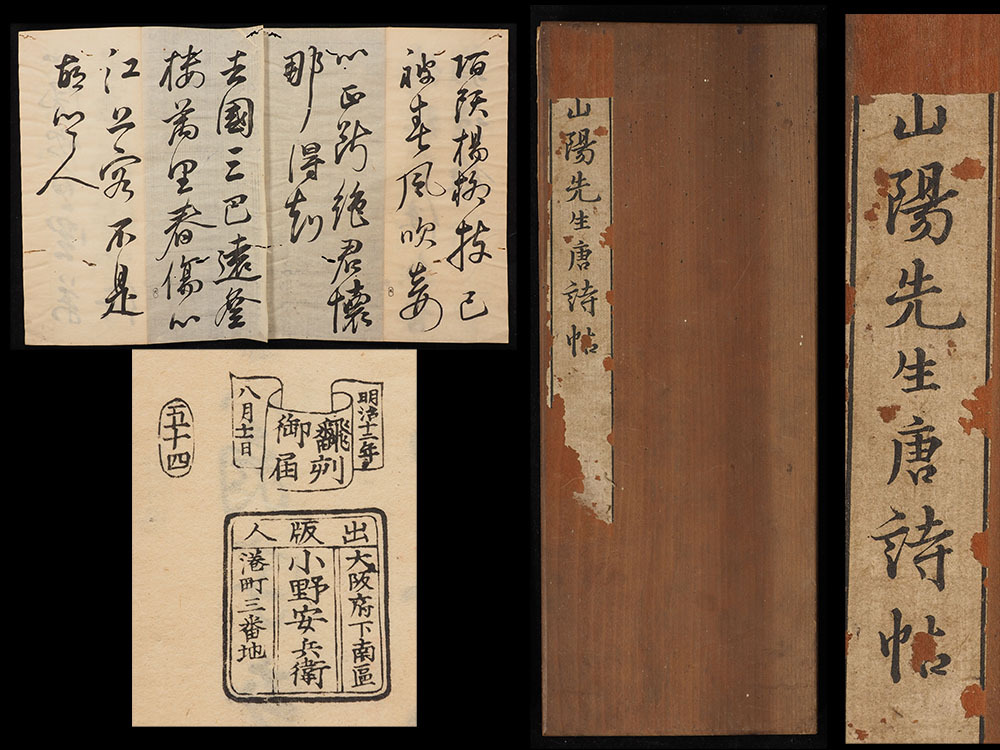 陌頭楊柳枝已
被春風吹妾
心正斷絶君懷
那得知
去國三巴遠登
樓萬里春傷心
江上客不是
故郷人
明治十二年
翻刻
御届
八月十一日
五十四
出版人
大阪府下南區
小野安兵衛
港町三番地
山陽先生唐詩帖
山陽先生唐詩帖